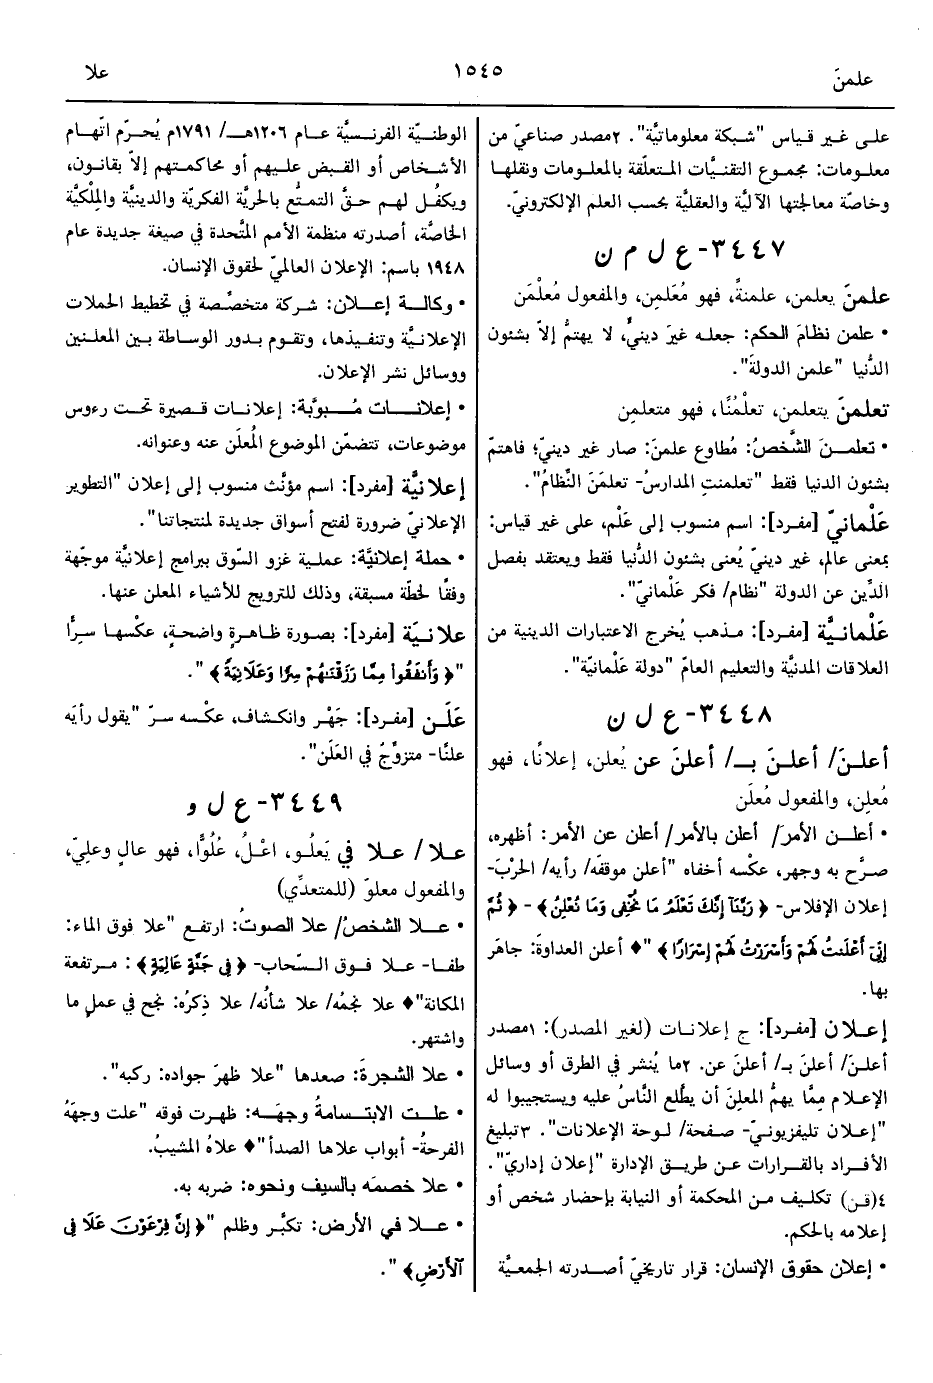 علمنَ
١٥٤٥
علا
على غير قياس "شبكة معلوماتيَّة". ٢مصدر صناعيّ من
معلومات: مجموع التقنيَّات المتعلّقة بالمعلومات ونقلها
وخاصّة معالجتها الآليَّة والعقليَّة بحسب العلم الإلكترونيّ.
٣٤٤٧- ع ل م ن
علمنَ يعلمن، علمنةً، فهو مُعَلمِن، والمفعول مُعلْمَن
• علمن نظامَ الحكم: جعله غيرَ دينيٍّ، لا يهتمُّ إلاّ بشئون
الدُّنيا "علمن الدولةَ".
تعلمنَ يتعلمن، تعلْمُنًا، فهو متعلمِن
• تعلمنَ الشَّخصُ: مُطاوع علمنَ: صار غير دينيّ؛ فاهتمّ
بشئون الدنيا فقط "تعلمنتِ المدارسُ- تعلمَنَ النِّظامُ".
عَلْمانيّ [مفرد]: اسم منسوب إلى عَلْم، على غير قياس:
بمعنى عالم، غير دينيّ يُعنى بشئون الدُّنيا فقط ويعتقد بفصل
الدِّين عن الدولة "نظام/ فكر عَلْمانيّ".
عَلْمانيَّة [مفرد]: مذهب يُخرج الاعتبارات الدينية من
العلاقات المدنيَّة والتعليم العامّ "دولة عَلْمانيّة".
٣٤٤٨- ع ل ن
أعلنَ/ أعلنَ بـ/ أعلنَ عن يُعلن، إعلانًا، فهو
مُعلِن، والمفعول مُعلَن
• أعلن الأمرَ/ أعلن بالأمر/ أعلن عن الأمر: أظهره،
صرَّح به وجهر، عكْسه أخفاه "أعلن موقفَه/ رأيه/ الحرْبَ-
إعلان الإفلاس- ﴿ رَبَّنَآ إِنَّكَ تَعْلَمُ مَا نُخْفِى وَمَا نُعْلِنُ ﴾ - ﴿ ثُمَّ
إِنِّىٓ أَعْلَنتُ لَهُمْ وَأَسْرَرْتُ لَهُمْ إِسْرَارًا ﴾ "♦ أعلن العداوةَ: جاهَر
بها.
إعلان [مفرد]: ج إعلانات (لغير المصدر): ١مصدر
أعلنَ/ أعلنَ بـ/ أعلنَ عن. ٢ما يُنشر في الطرق أو وسائل
الإعلام مِمَّا يهمُّ المعلِنَ أن يطَّلع النَّاسُ عليه ويستجيبوا له
"إعلان تليفزيونيّ- صفحة/ لوحة الإعلانات". ٣تبليغ
الأفراد بالقرارات عن طريق الإدارة "إعلان إداريّ".
٤(قن) تكليف من المحكمة أو النيابة بإحضار شخص أو
إعلامه بالحكم.
• إعلان حقوق الإنسان: قرار تاريخيّ أصدرته الجمعيَّة
الوطنيّة الفرنسيَّة عام ١٢٠٦هـ/ ١٧٩١م يُحرّم اتّهام
الأشخاص أو القبض عليهم أو محاكمتهم إلاّ بقانون،
ويكفُل لهم حقَّ التمتع بالحريَّة الفكريَّة والدينيَّة والمِلْكيَّة
الخاصَّة، أصدرته منظمة الأمم المتَّحدة في صيغة جديدة عام
١٩٤٨ باسم: الإعلان العالميّ لحقوق الإنسان.
• وكالة إعلان: شركة متخصِّصة في تخطيط الحملات
الإعلانيَّة وتنفيذها، وتقوم بدور الوساطة بين المعلنين
ووسائل نشر الإعلان.
• إعلانات مُبوَّبة: إعلانات قصيرة تحت رءوس
موضوعات، تتضمّن الموضوع المُعلَن عنه وعنوانه.
إعلانيَّة [مفرد]: اسم مؤنَّث منسوب إلى إعلان "التطوير
الإعلانيّ ضرورة لفتح أسواق جديدة لمنتجاتنا".
• حملة إعلانيَّة: عملية غزو السّوق ببرامج إعلانيَّة موجّهة
وفقًا لخطّة مسبقة، وذلك للترويج للأشياء المعلن عنها.
علانيَة [مفرد]: بصورة ظاهرةٍ واضحةٍ، عكْسها سرًّا
"﴿ وَأَنفَقُوا۟ مِمَّا رَزَقْنَٰهُمْ سِرًّا وَعَلَانِيَةً ﴾ ".
عَلَن [مفرد]: جَهْر وانكشاف، عكْسه سرّ "يقول رأيَه
علنًا- متزوِّجٌ في العَلَن".
٣٤٤٩- ع ل و
علا/ علا في يَعلُو، اعْلُ، عُلُوًّا، فهو عالٍ وعليّ،
والمفعول معلوّ (للمتعدِّي)
• علا الشخصُ/ علا الصوتُ: ارتفع "علا فوق الماء:
طفا- علا فوق السّحاب- ﴿ فِى جَنَّةٍ عَالِيَةٍ ﴾ : مرتفعة
المكانة"♦ علا نجمُه/ علا شأنُه/ علا ذِكرُه: نجح في عملٍ ما
واشتهر.
• علا الشجرةَ: صعدها "علا ظهرَ جواده: ركبه".
• علت الابتسامةُ وجهَه: ظهرت فوقه "علت وجهَهُ
الفرحةُ- أبواب علاها الصدأ"♦ علاهُ المشيبُ.
• علا خصمَه بالسيف ونحوه: ضربه به.
• علا في الأرض: تكبَّر وظلم "﴿ إِنَّ فِرْعَوْنَ عَلَا فِى
ٱلْأَرْضِ ﴾ ".